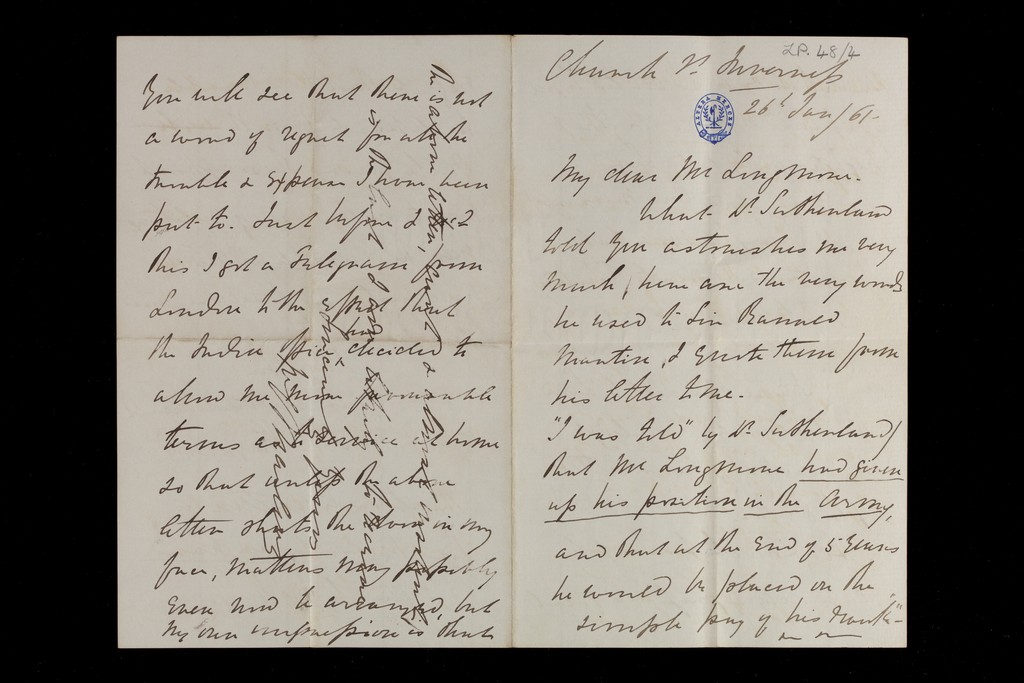 LP. 48/4
Church St. Inverness
26th Jan/61.
My dear Mr Longmore.
What Dr. Sutherland
told you astonishes me very
much, here are the very words
he used to Sir Ranald
Martin, I quote them from
his letter to me.
"I was told" by Dr. Sutherland/
that Mr Longmore had given
up his position in the Army,
and that at the end of 5 years
he would be placed on the
simple pay of his rank"-
You will see that there is not
a word of regret for all the
trouble & expense I have been
put to. Just before I
this I got a Telegram from
London to the effect that
the India Office had decided to
allow me more favourable
terms as to service at home
so that unless the above
letter shuts the door in my
face, matters may possibly
even now be arranged, but
my own impression is that
he is not
is the
yours